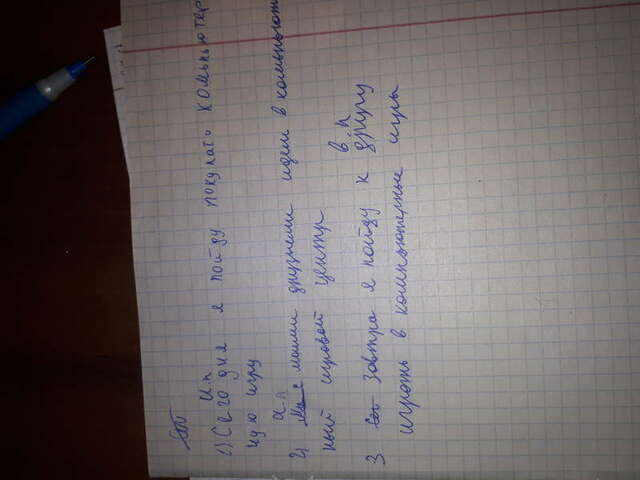 И.п
1) Сегодня я пойду покупать компьютер
ную игру
д.п
2) моими друзьями идем в компьют
ный игровой центр
в.п
3 Завтра я пойду к другу
играть в компьютерные игры